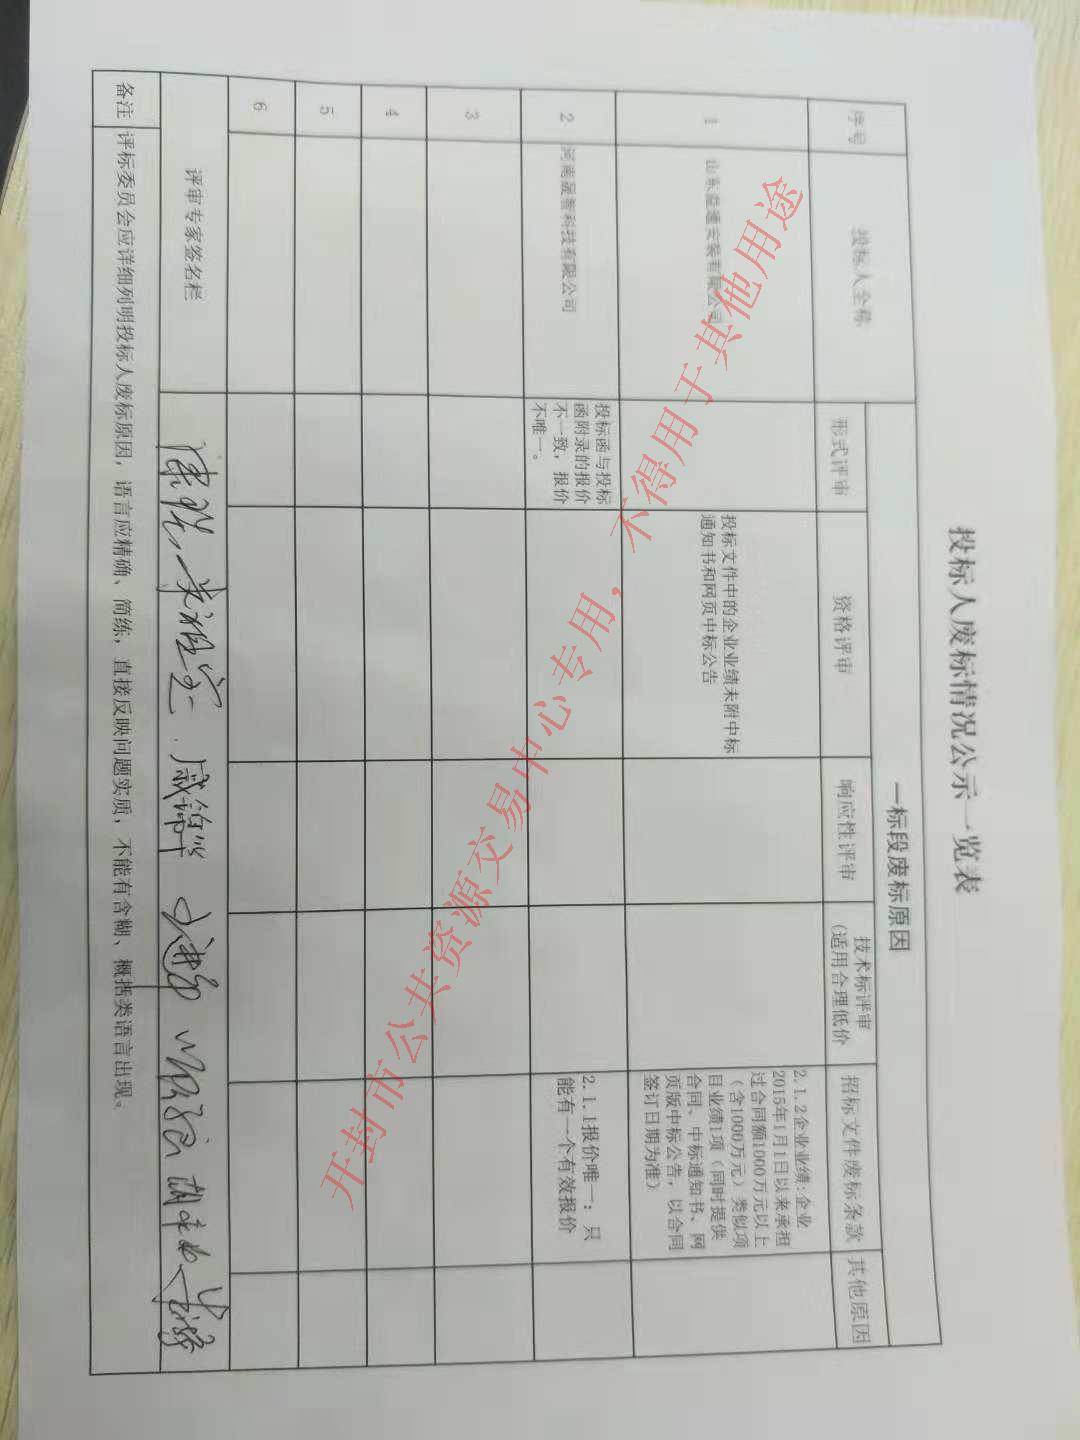 投标人废标情况公示一览表
序号
投标人全称
一标段废标原因
形式评审
资格评审
响应性评审
技术标评审
(适用合理低价
招标文件废标条款
其他原因
1
山东益通安装有限公司
投标文件中的企业业绩未附中标
通知书和网页中标公告
2.1.2企业业绩:企业
2015年1月1日以来承担
过合同额1000万元以上
（含1000万元）类似项
目业绩1项（同时提供
合同、中标通知书、网
页版中标公告，以合同
签订日期为准）
2
河南晟普科技有限公司
投标函与投标
函附录的报价
不一致，报价
不唯一。
2.1.1报价唯一：只
能有一个有效报价
3
4
5
6
评审专家签名栏
备注
评标委员会应详细列明投标人废标原因，语言应精确、简练，直接反映问题实质，不能有含糊、概括类语言出现。
开封市公共资源交易中心专用，不得用于其他用途